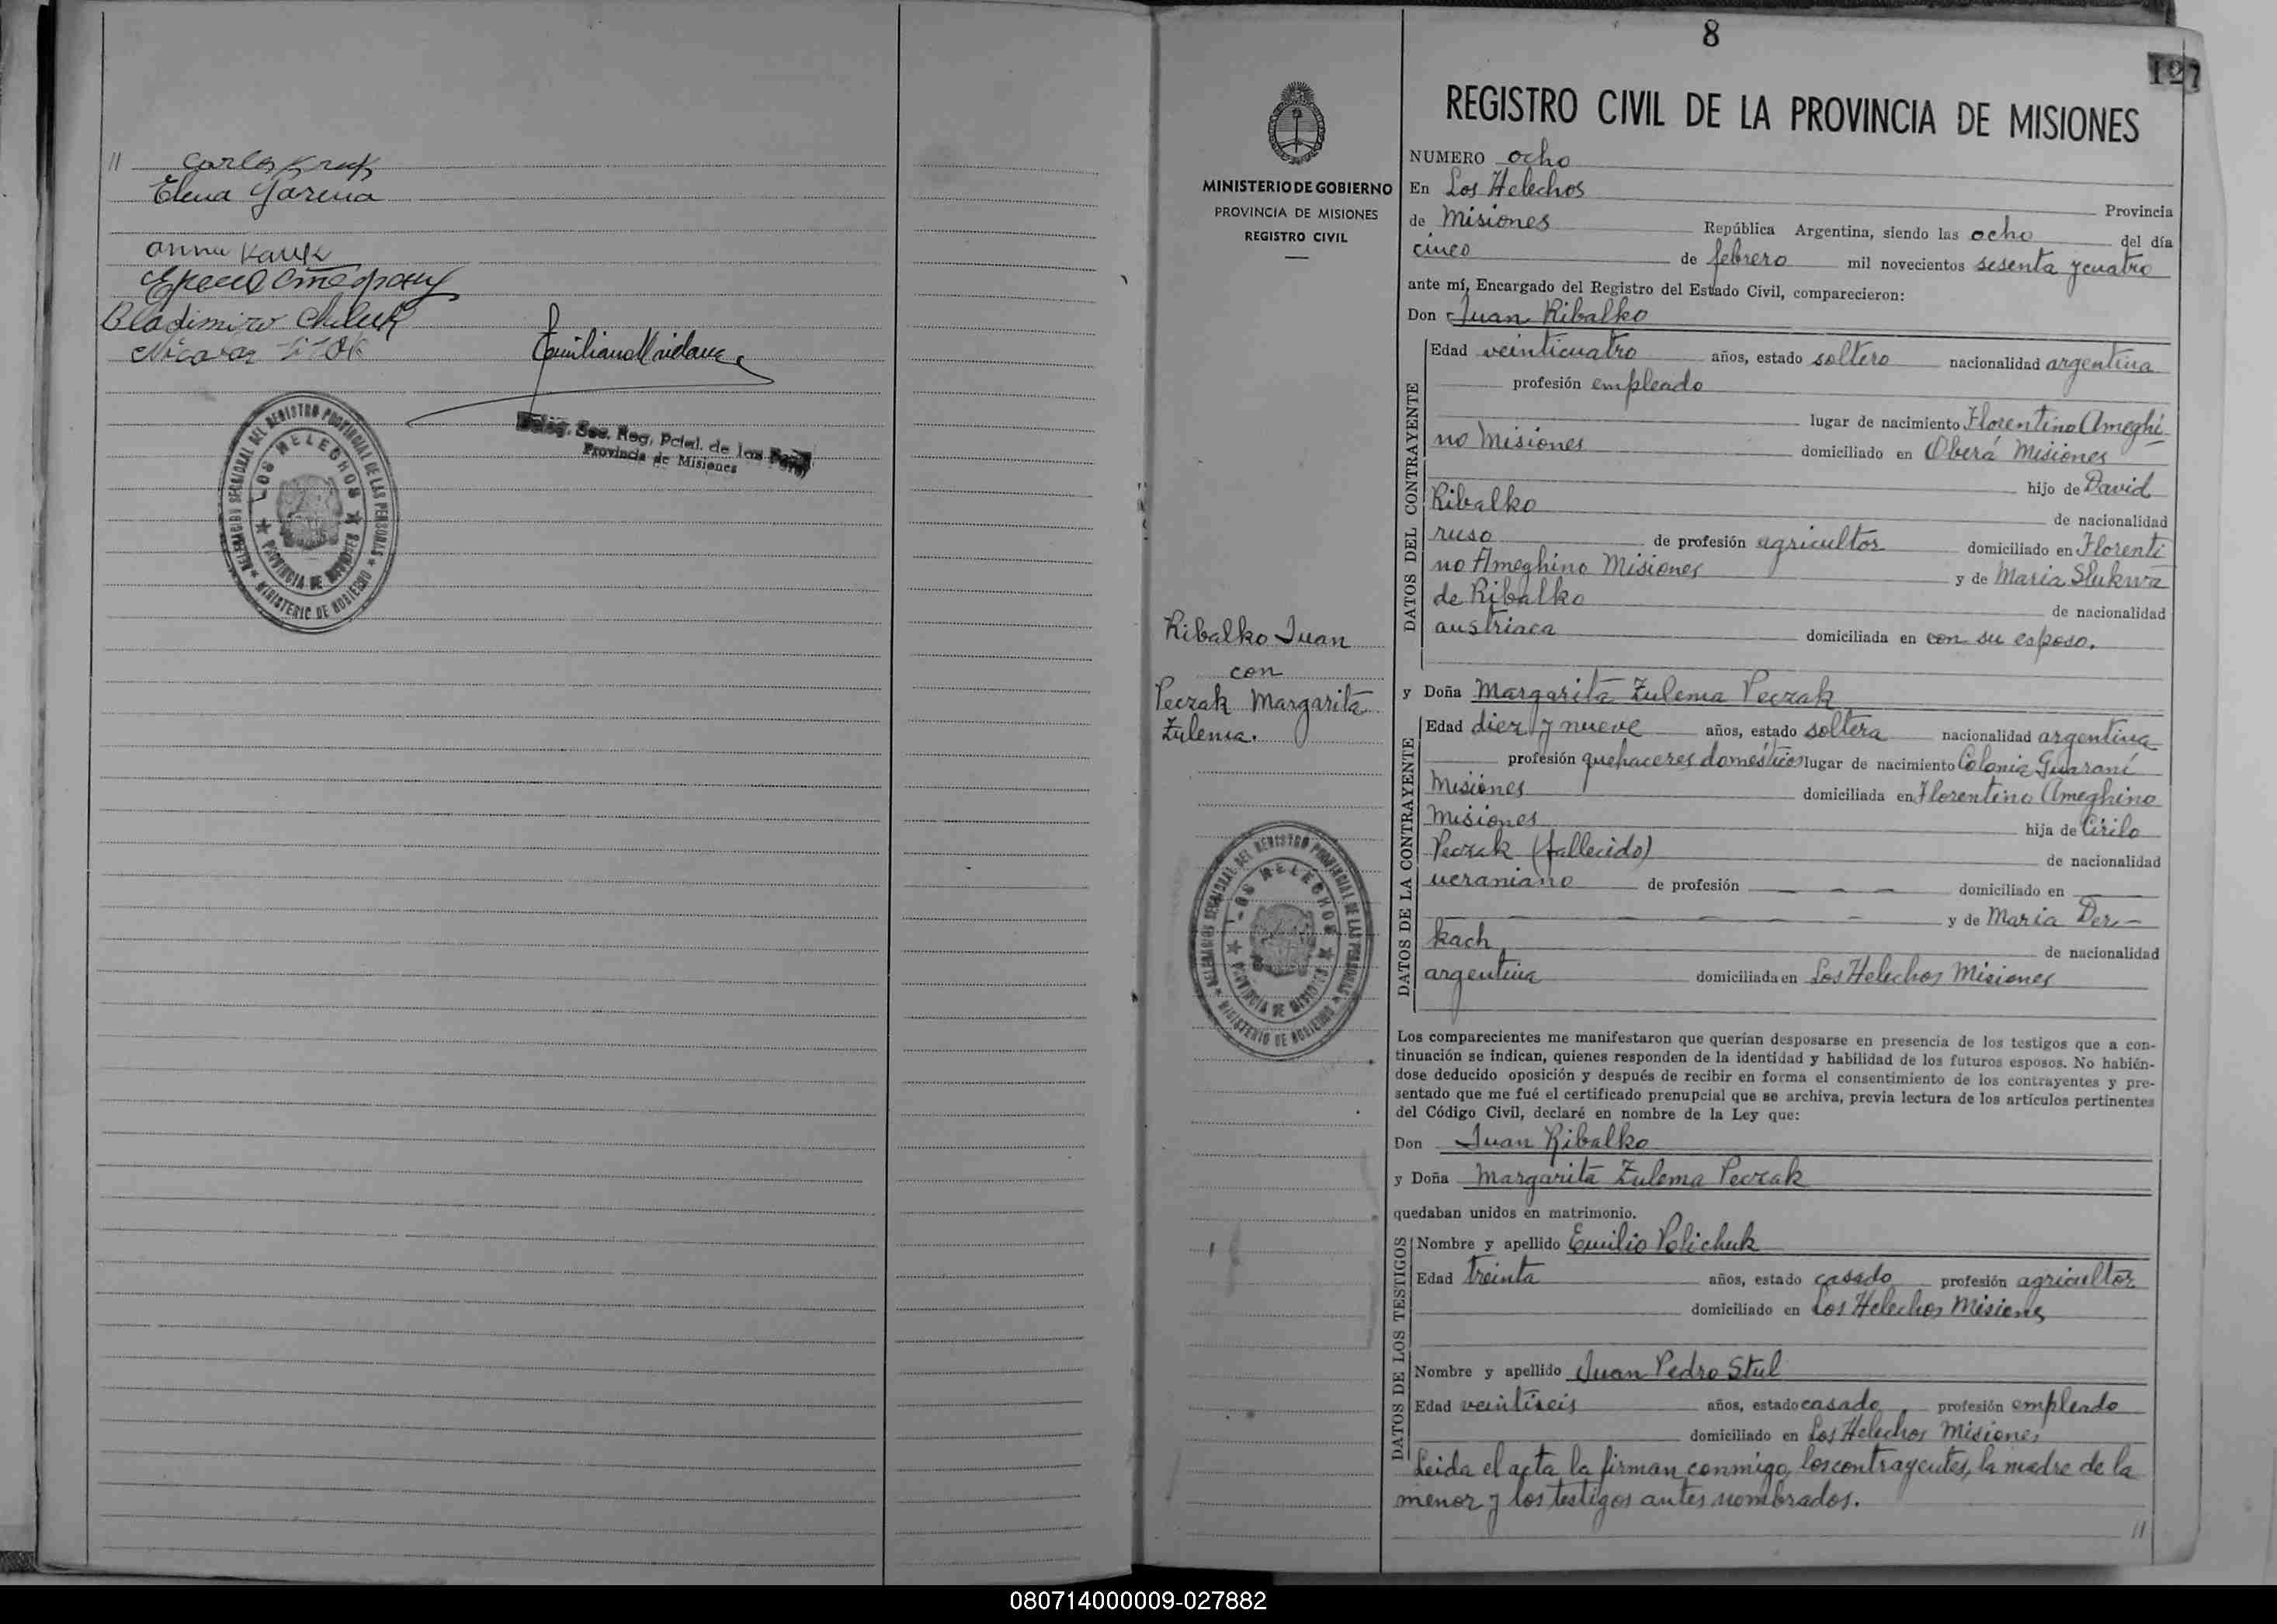 // Carlos Kruk
Elena Yarena
Anna
Bladimiro Chiluk
Emiliano
Deleg. Sec. Reg. Pcial. de las Pers.
Provincia de Misiones
DELEGACION SECCIONAL DEL REGISTRO PROVINCIAL DE LAS PERSONAS ★ MINISTERIO DE GOBIERNO ★
LOS HELECHOS ★ PROVINCIA DE MISIONES ★
8
127
MINISTERIO DE GOBIERNO
PROVINCIA DE MISIONES
REGISTRO CIVIL
Ribalko Juan
con
Peczak Margarita
Zulema.
DELEGACION SECCIONAL DEL REGISTRO PROVINCIAL DE LAS PERSONAS ★ MINISTERIO DE GOBIERNO ★
LOS HELECHOS ★ PROVINCIA DE MISIONES ★
REGISTRO CIVIL DE LA PROVINCIA DE MISIONES
NUMERO ocho
En Los Helechos Provincia
de Misiones República Argentina, siendo las ocho del día
cinco de febrero mil novecientos sesenta y cuatro
ante mí, Encargado del Registro del Estado Civil, comparecieron:
Don Juan Ribalko
DATOS DEL CONTRAYENTE
Edad veinticuatro años, estado soltero nacionalidad argentina
profesión empleado
lugar de nacimiento Florentino Ameghi-
no Misiones domiciliado en Oberá Misiones
hijo de David
Ribalko de nacionalidad
ruso de profesión agricultor domiciliado en Florenti
no Ameghino Misiones y de Maria Slukwa
de Ribalko de nacionalidad
austriaca domiciliada en con su esposo.
y Doña Margarita Zulema Peczak
DATOS DE LA CONTRAYENTE
Edad diez y nueve años, estado soltera nacionalidad argentina
profesión quehaceres domésticos lugar de nacimiento Colonia Guaraní
Misiones domiciliada en Florentino Ameghino
Misiones hija de Cirilo
Peczak (fallecido) de nacionalidad
ucraniano de profesión — — — domiciliado en —
— — — — — — y de Maria Der-
kach de nacionalidad
argentina domiciliada en Los Helechos Misiones
Los comparecientes me manifestaron que querían desposarse en presencia de los testigos que a con-
tinuación se indican, quienes responden de la identidad y habilidad de los futuros esposos. No habién-
dose deducido oposición y después de recibir en forma el consentimiento de los contrayentes y pre-
sentado que me fué el certificado prenupcial que se archiva, previa lectura de los artículos pertinentes
del Código Civil, declaré en nombre de la Ley que:
Don Juan Ribalko
y Doña Margarita Zulema Peczak
quedaban unidos en matrimonio.
DATOS DE LOS TESTIGOS
Nombre y apellido Emilio Polichuk
Edad treinta años, estado casado profesión agricultor
domiciliado en Los Helechos Misiones
Nombre y apellido Juan Pedro Stul
Edad veintiseis años, estado casado profesión empleado
domiciliado en Los Helechos Misiones
Leida el acta la firman conmigo, los contrayentes, la madre de la
menor y los testigos antes nombrados.
//
080714000009-027882